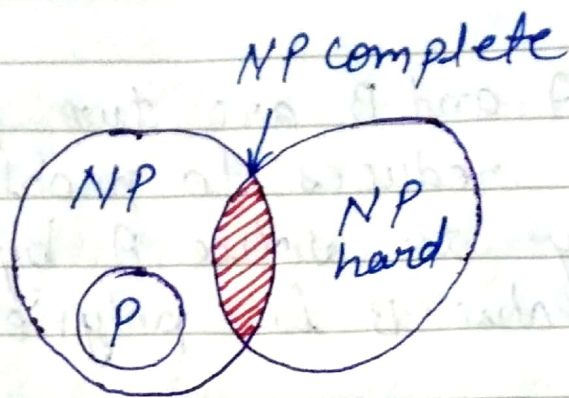 NP complete
NP
NP
hard
P